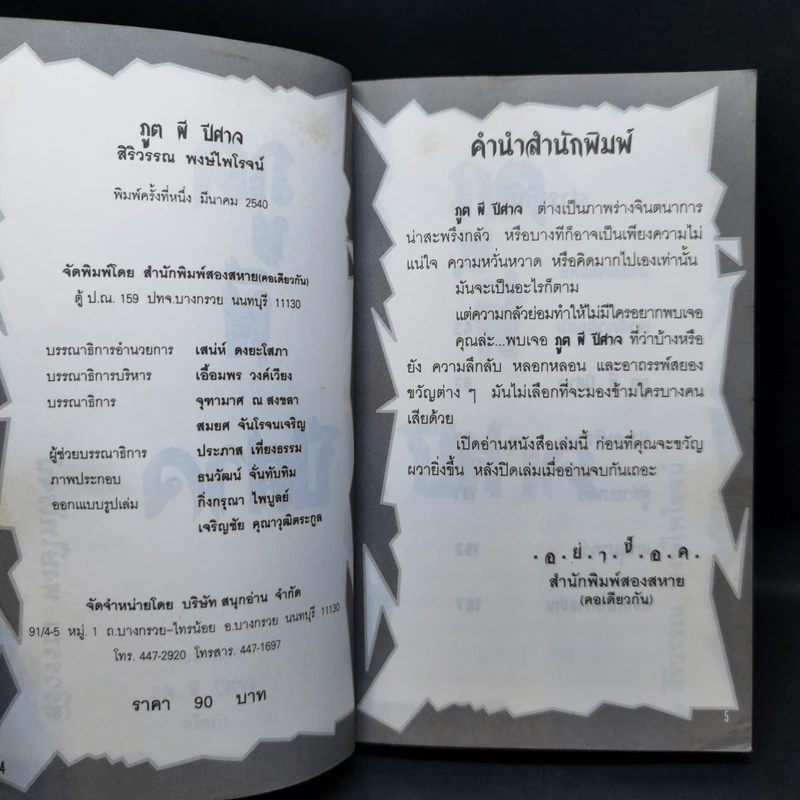 ภูต ผี ปีศาจ
สิริวรรณ พงษ์ไพโรจน์
พิมพ์ครั้งที่หนึ่ง มีนาคม 2540
จัดพิมพ์โดย สำนักพิมพ์สองสหาย(คอเดียวกัน)
ตู้ ป.ณ. 159 ปทจ.บางกรวย นนทบุรี 11130
บรรณาธิการอำนวยการ เสน่ห์ ดงยะโสภา
บรรณาธิการบริหาร เอื้อมพร วงค์เวียง
บรรณาธิการ จุฑามาศ ณ สงขลา
สมยศ จันโรจนเจริญ
ผู้ช่วยบรรณาธิการ ประภาส เที่ยงธรรม
ภาพประกอบ ธนวัฒน์ จั่นทับทิม
ออกแบบรูปเล่ม กิ่งกรุณา ไพบูลย์
เจริญชัย คุณาวุฒิตระกูล
จัดจำหน่ายโดย บริษัท สนุกอ่าน จำกัด
91/4-5 หมู่. 1 ถ.บางกรวย-ไทรน้อย อ.บางกรวย นนทบุรี 11130
โทร. 447-2920 โทรสาร. 447-1697
ราคา 90 บาท
4
คำนำสำนักพิมพ์
ภูต ผี ปีศาจ ต่างเป็นภาพร่างจินตนาการ
น่าสะพรึงกลัว หรือบางทีก็อาจเป็นเพียงความไม่
แน่ใจ ความหวั่นหวาด หรือคิดมากไปเองเท่านั้น
มันจะเป็นอะไรก็ตาม
แต่ความกลัวย่อมทำให้ไม่มีใครอยากพบเจอ
คุณล่ะ...พบเจอ ภูต ผี ปีศาจ ที่ว่าบ้างหรือ
ยัง ความลึกลับ หลอกหลอน และอาถรรพ์สยอง
ขวัญต่าง ๆ มันไม่เลือกที่จะมองข้ามใครบางคน
เสียด้วย
เปิดอ่านหนังสือเล่มนี้ ก่อนที่คุณจะขวัญ
ผวายิ่งขึ้น หลังปิดเล่มเมื่ออ่านจบกันเถอะ
.อ.ย่.า.ช็.อ.ค.
สำนักพิมพ์สองสหาย
(คอเดียวกัน)
5